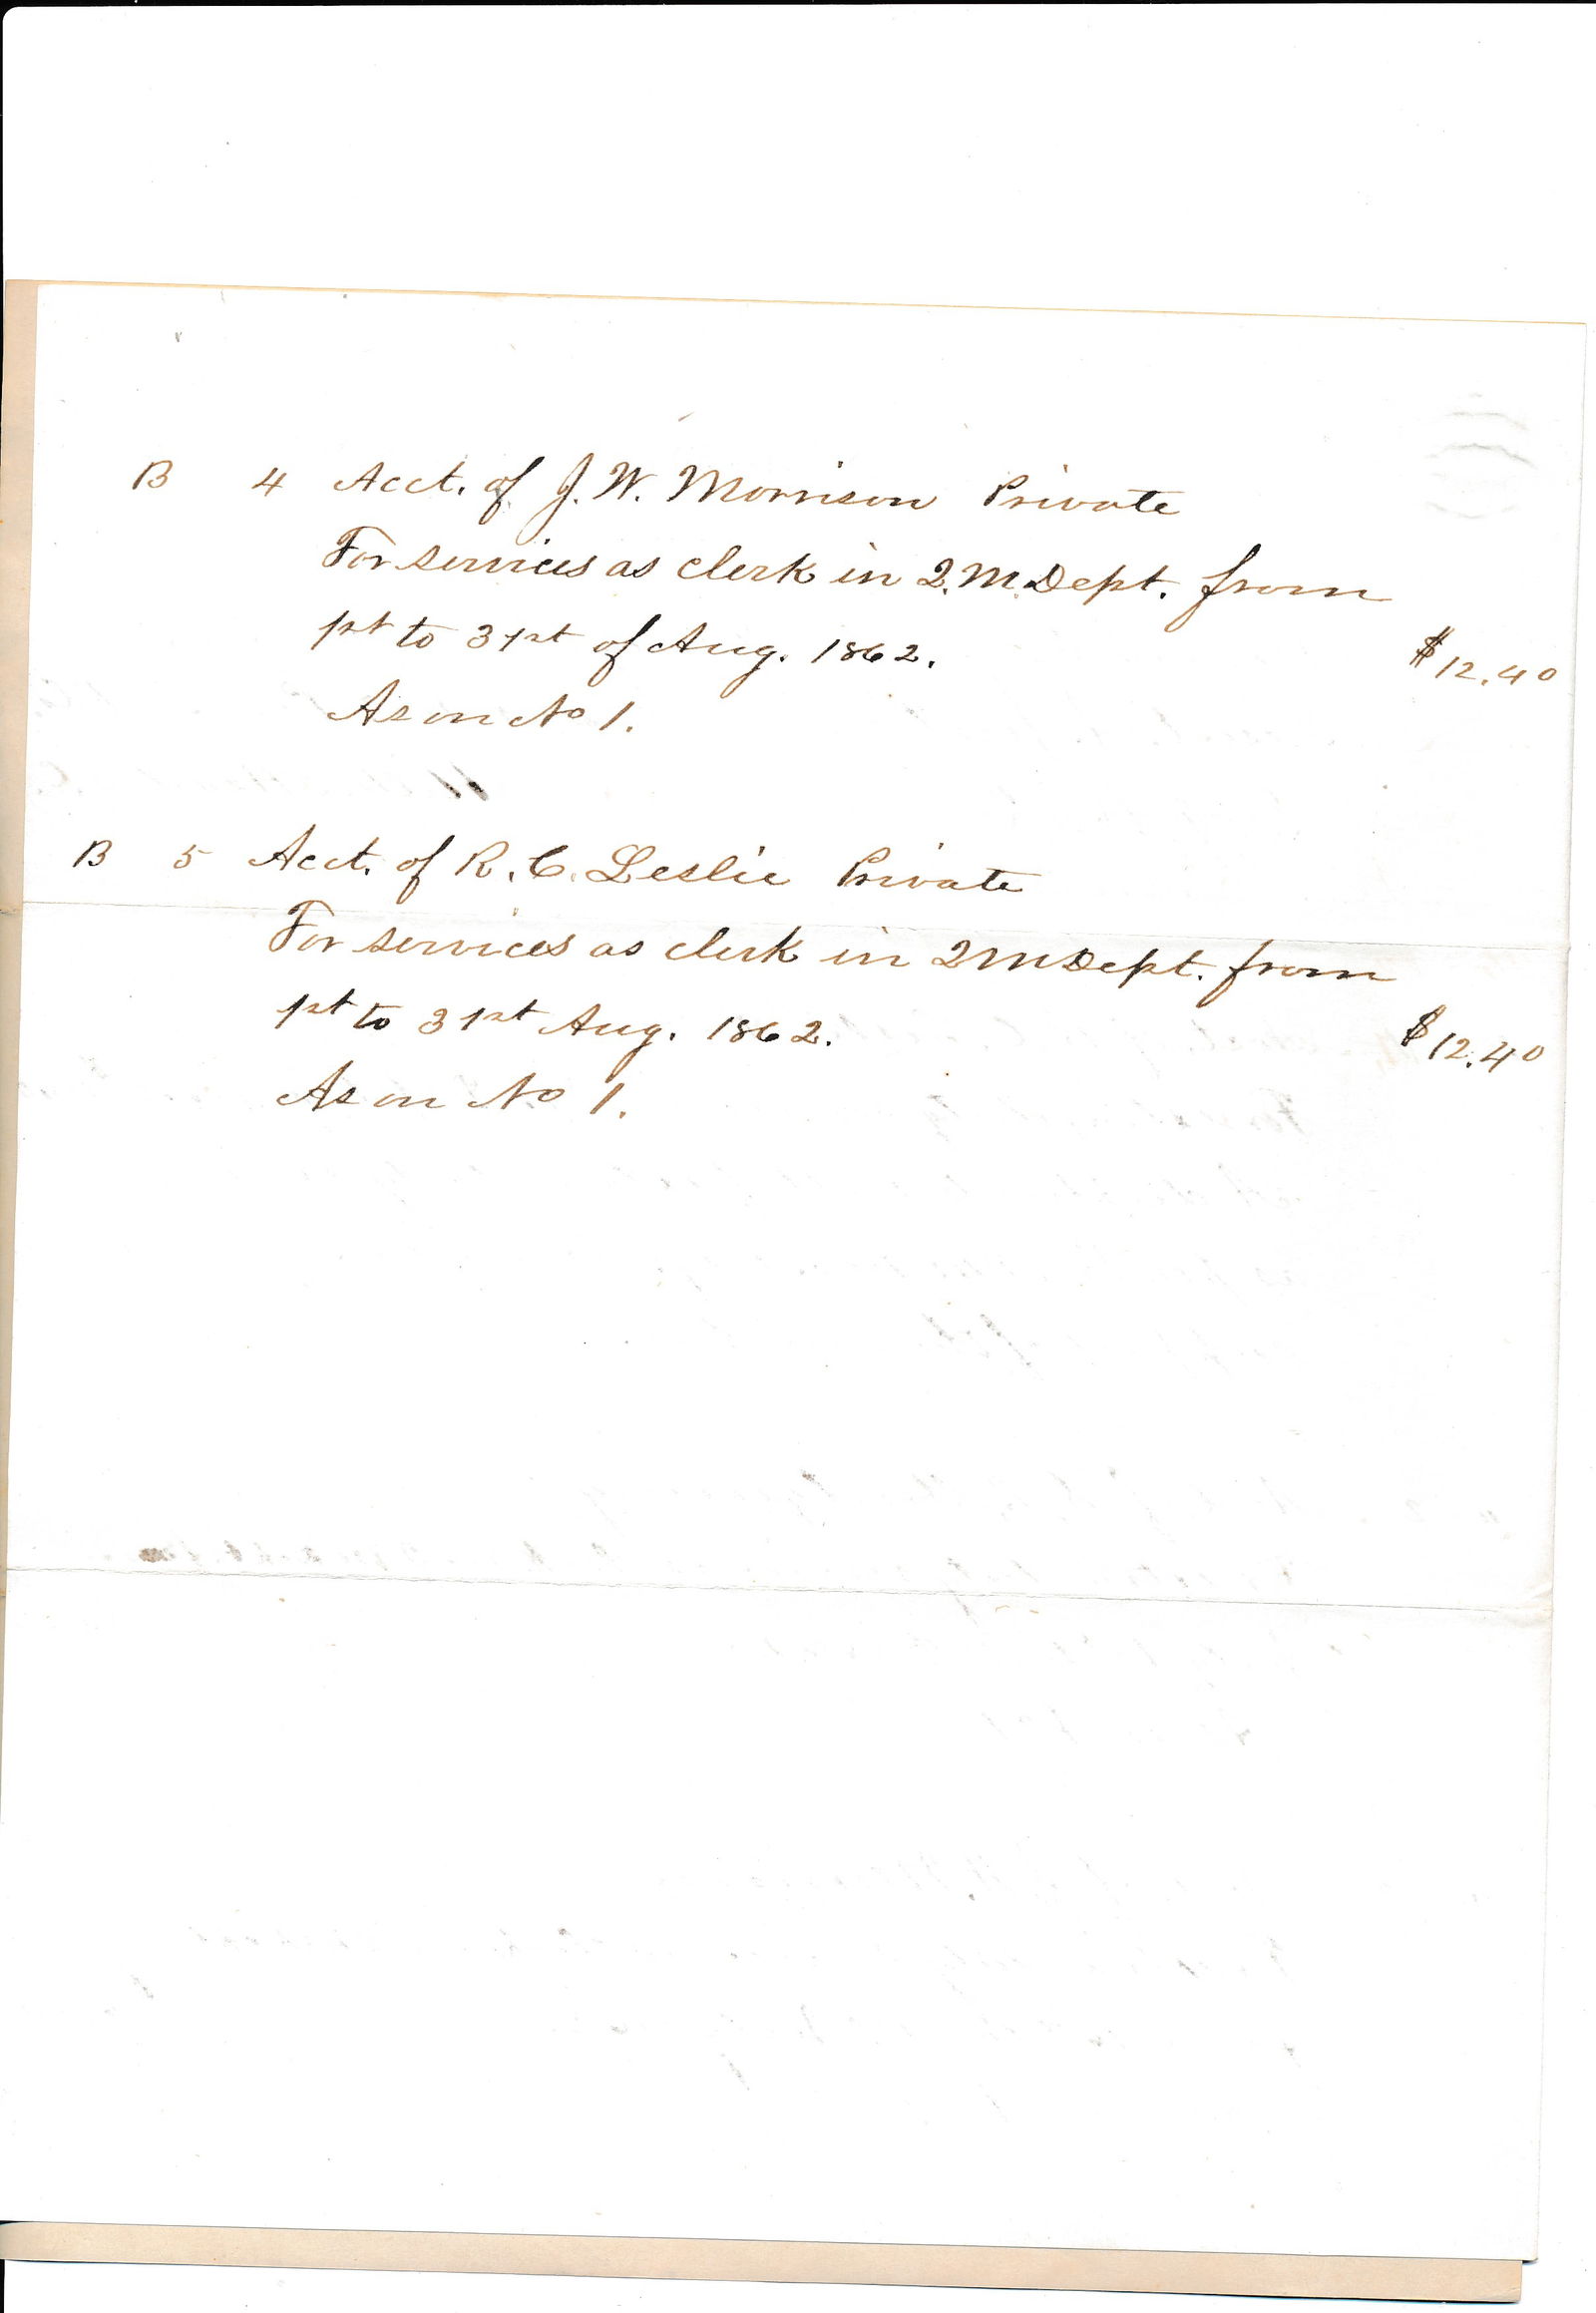 B 4 Acct. of J. W. Morrison Private
For services as clerk in Q. M. Dept. from
1st to 31st of Aug. 1862. $12.40
As on No 1.
B 5 Acct. of R. C. Leslie Private
For services as clerk in Q M Dept. from
1st to 31st Aug. 1862. $12.40
As on No 1.